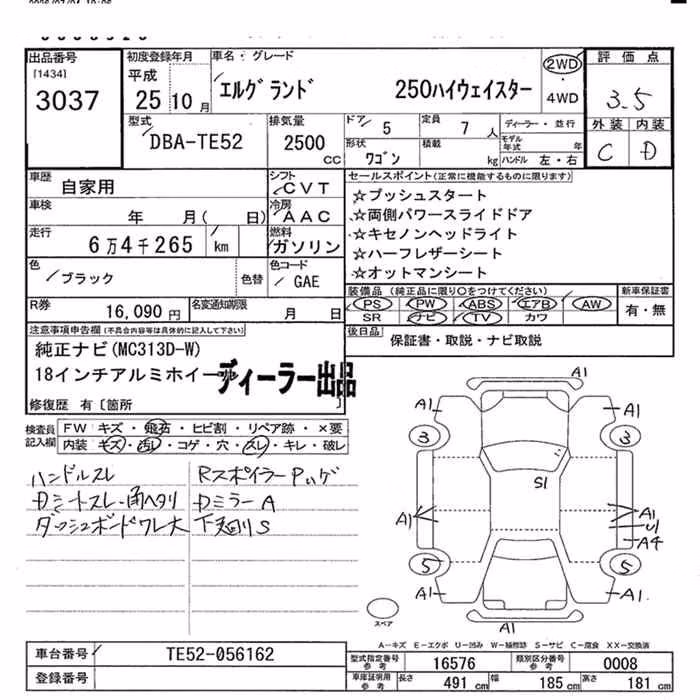 出品番号
[1434]
3037
初度登録年月
平成
25年10月
車名・グレード
エルグランド 250ハイウェイスター
2WD
・
4WD
評価点
3.5
外装 内装
C D
型式
DBA-TE52
排気量
2500
CC
ドア 5
定員 7人
ディーラー・並行
モデル年式 年
形状
ワゴン
積載 kg
ハンドル 左・右
車歴
自家用
車検
年 月( 日)
走行
6万4千265 km
色
ブラック
色替
シフト
CVT
冷房
AAC
燃料
ガソリン
色コード
GAE
R券
16,090円
名変通知期限
月 日
セールスポイント(正常に機能するものに限ります)
☆プッシュスタート
☆両側パワースライドドア
☆キセノンヘッドライト
☆ハーフレザーシート
☆オットマンシート
装備品 (純正品に限り○をつけてください)
PS PW ABS エアB AW
SR ナビ TV カワ
新車保証書
有・無
後日品
保証書・取説・ナビ取説
注意事項申告欄(不具合内容等は具体的に記入して下さい)
純正ナビ(MC313D-W)
18インチアルミホイール
ディーラー出品
修復歴 有〔箇所 〕
検査員記入欄
FW キズ・飛石・ヒビ割・リペア跡・×要
内装 キズ・汚レ・コゲ・穴・スレ・キレ・破レ
ハンドルスレ
Dシートスレ・角ヘタリ
ダッシュボードワレ大
RスポイラーPハゲ
DミラーA
下廻りS
A1
A1
A1
3
3
S1
A1
A1
U1
A4
5
5
A1
A1
A1
スペア
A-キズ E-エクボ U-凹み W-補修跡 S-サビ C-腐食 XX-交換済
車台番号
TE52-056162
登録番号
型式指定番号 参考
16576
類別区分番号 参考
0008
車庫証明用 参考
長さ 491 cm
幅 185 cm
高さ 181 cm